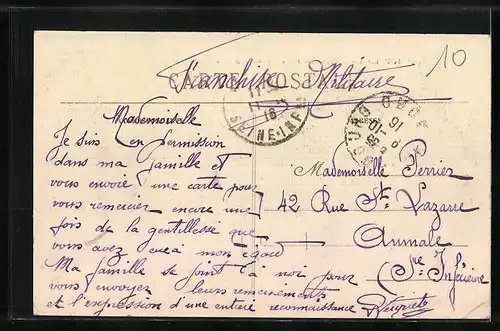 10
CARTE POSTALE
Franchise Militaire
SEINE-INFRE
16
Mademoiselle
Je suis en permission
dans ma famille et
vous envoie une carte pour
vous remercier encore une
fois de la gentillesse que
vous avez eue à mon égard
Ma famille se joint à moi pour
vous envoyez leurs remerciments
et l'expression d'une entière reconnaissance
Mademoiselle Perrier
42 Rue St. Lazarre
Aumale
(Sne Inférieure